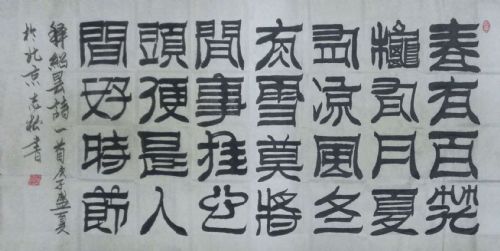 春有百花
龝有月夏
有凉風冬
有雪莫將
閒事挂心
頭便是人
間好時節
釋紹曇詩一首庚子盛夏
於北京志松書